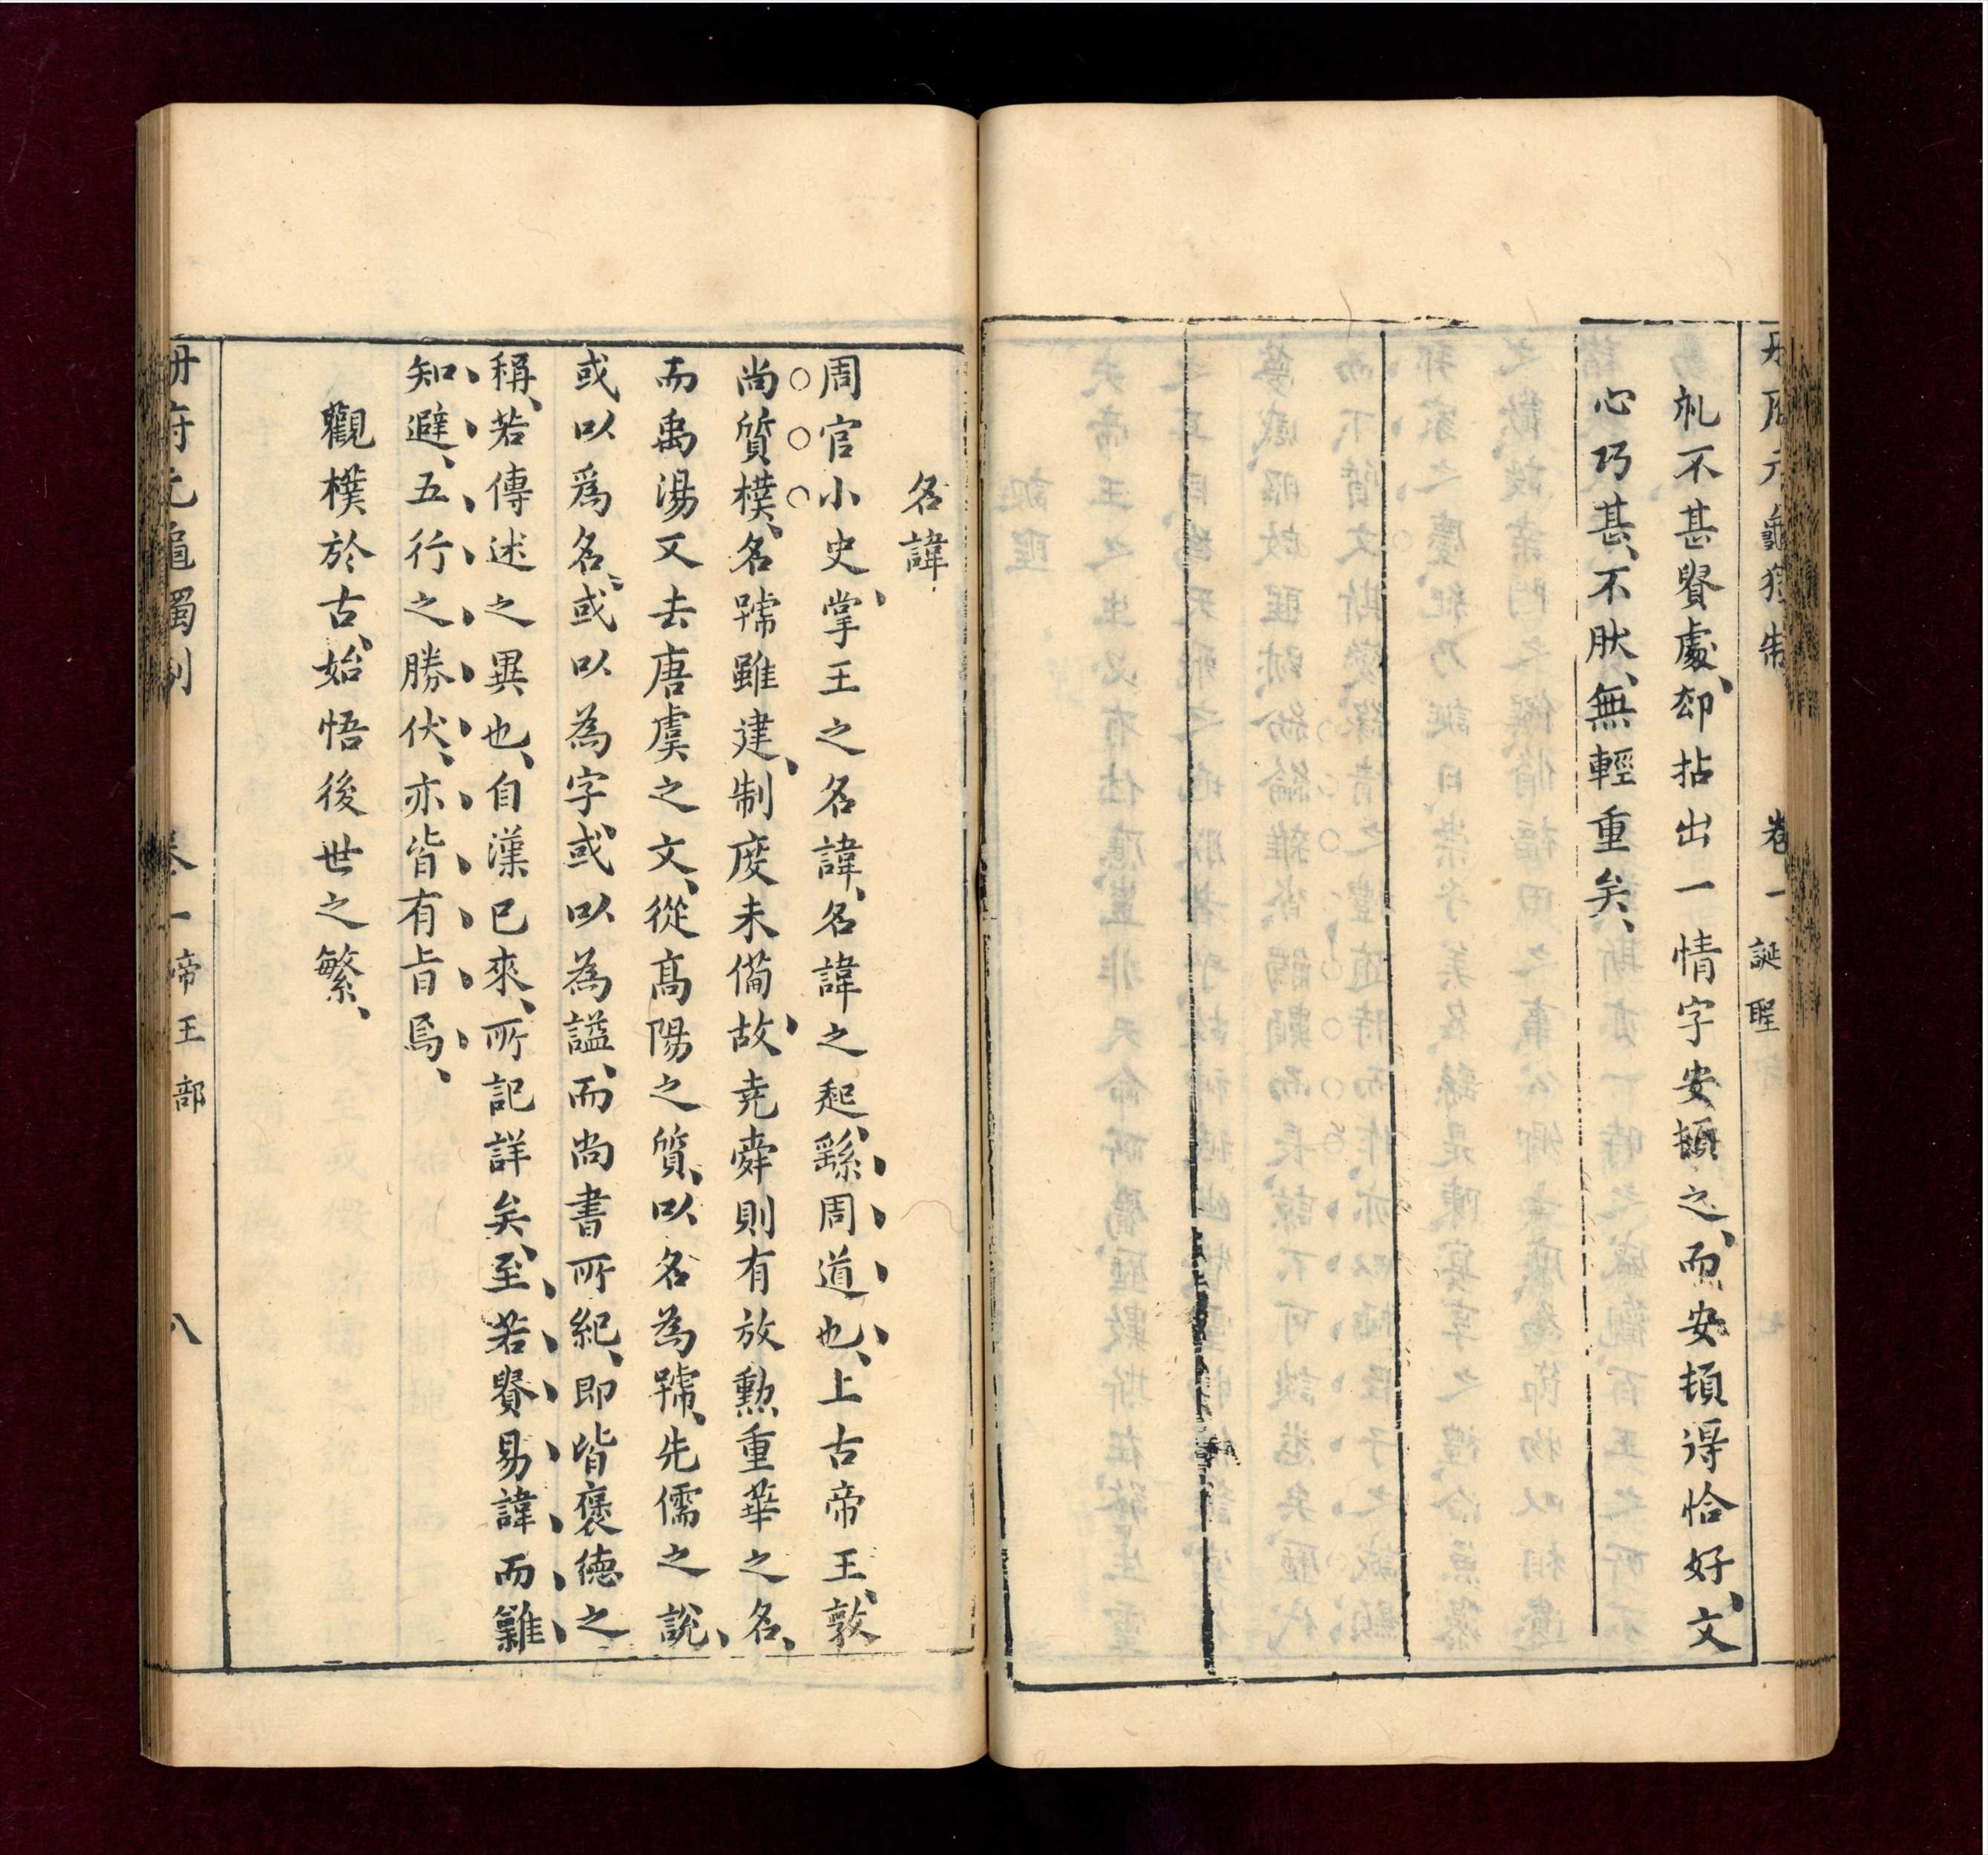 冊府元龜獨制
卷一
誕聖
礼不甚賢處、却拈出一情字安頓之、而安頓得恰好、文
心巧甚、不肰、無輕重矣、
名諱
周官小史、掌王之名諱、名諱之起、繇周道也、上古帝王、敦
尚質樸、名號雖建、制度未備、故堯舜則有放勲重華之名、
而禹湯又去唐虞之文、從髙陽之質、以名為號、先儒之說、
或以爲名、或以為字、或以為謚、而尚書所紀、即皆褒德之
稱、若傳述之異也、自漢已來、所記詳矣、至若賢易諱而難
知避、五行之勝伏、亦皆有旨焉、
觀樸於古、始悟後世之繁、
冊府元龜獨制
卷一
帝王部
八